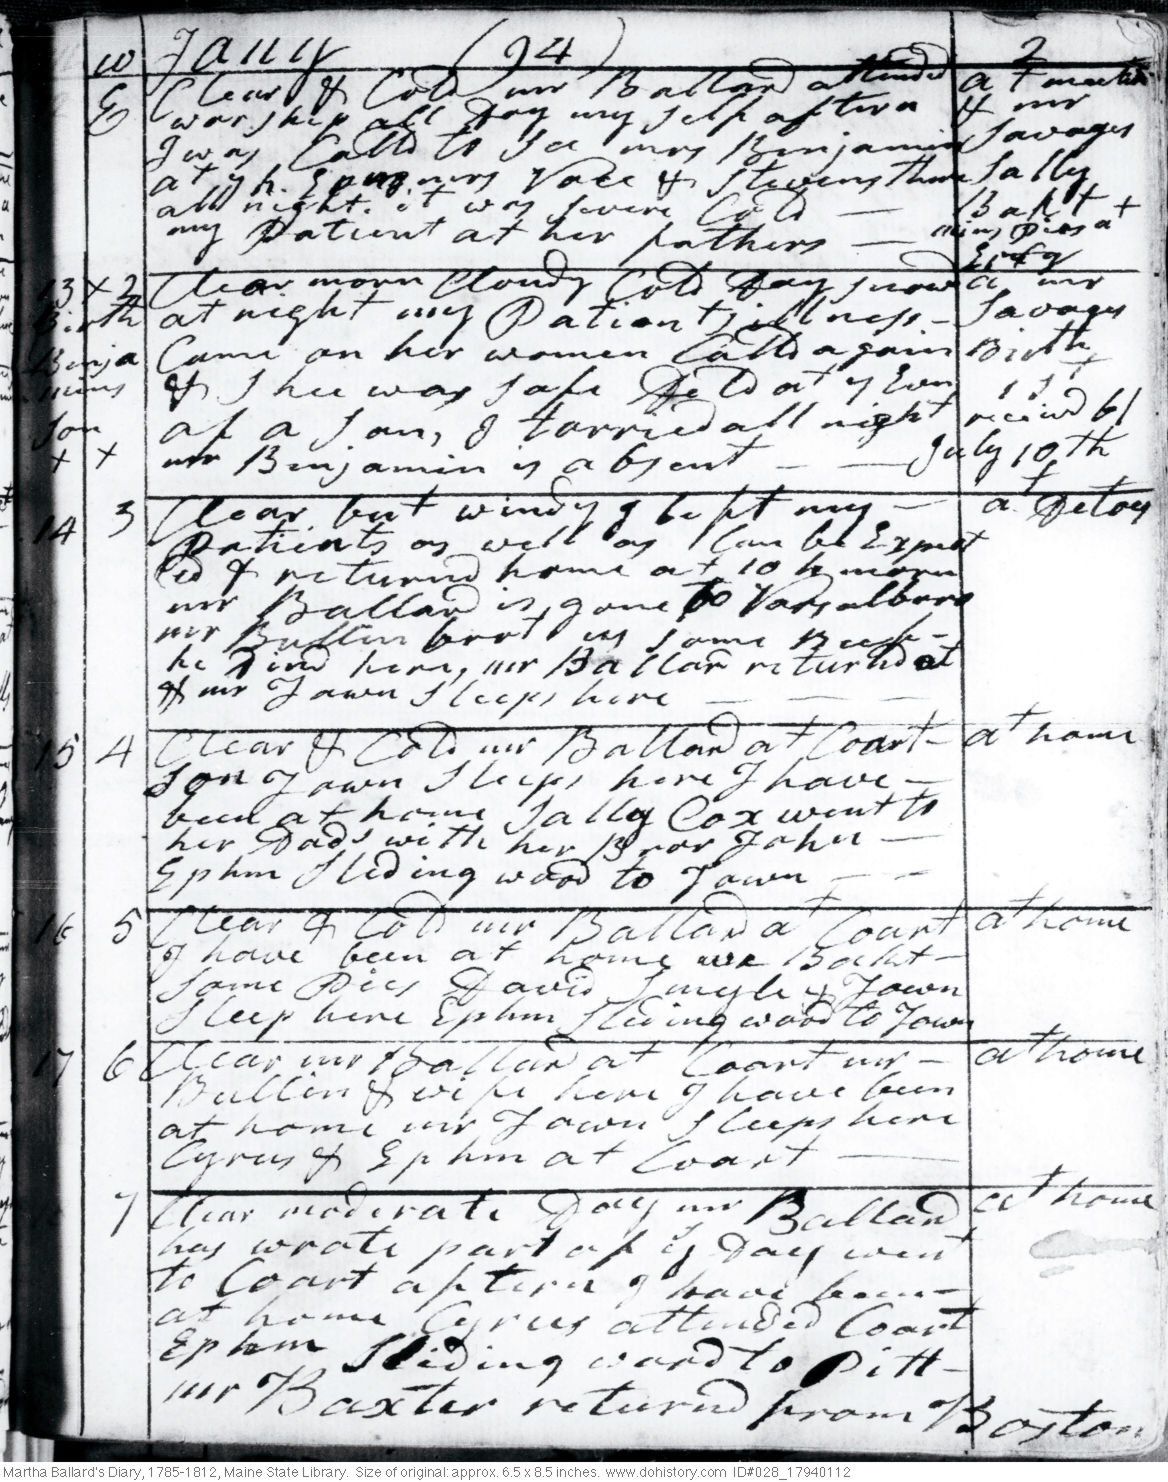 w Jany (94) 2
E Clear & Cold mr Ballard attended at meetin
worship all Day my self aftern & mr
I was Calld to See mrs Benjamin Savages
at 7 h. Evn mrs Vose & Stevens there Sally
all night. it was severe Cold — Bakt +
my Patient at her fathers — mins Pies at
13 x 2 Clear morn Cloudy Cold Day snowd at mr
Birth at night my Patients illness — Savages
Benja Came on her women Calld again Birth
mins & Shee was safe Deld at 7 Evn 1st
Son of a Son, I tarried all night receivd 6/
x x mr Benjamin is absent — — July 10th
14 3 Clear but windy I left my — at Detoys
Patients as well as Can be Expect
ed & returnd home at 10 h morn
mr Ballard is gone to Vassalboro
mr Bullin brot us some Beef —
he Dind here, mr Ballard returnd at
& mr Town Sleeps here — — —
15 4 Clear & Cold mr Ballard at Coart — at home
Son Town Sleeps here I have —
been at home Sally Cox went to
her Dads with her Bror John —
Ephm Sleding wood to Town — —
16 5 Clear & Cold mr Ballard at Coart at home
I have been at home we Backt —
Some Pies David Smyle & Town
Sleep here Ephm Sleding wood to Town
17 6 Clear mr Ballard at Coart mr — at home
Bullin & wife here I have been
at home mr Town Sleeps here
Cyrus & Ephm at Coart —
7 Clear moderate Day mr Ballard at home
has wrote part of ye Day went
to Coart aftern I have been —
at home Cyrus attended Coart
Ephm Sleding wood to Pitt —
mr Baxter returnd from Boston
Martha Ballard's Diary, 1785-1812, Maine State Library. Size of original: approx. 6.5 x 8.5 inches. www.dohistory.com ID#028_17940112